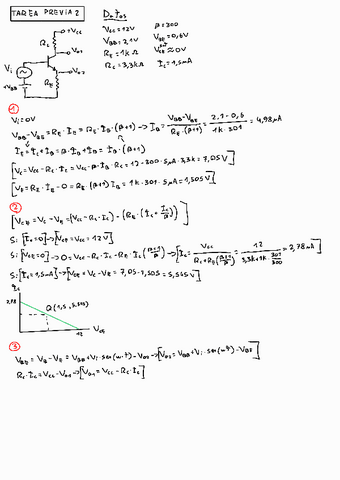 TAREA PREVIA 2
Datos
Vcc=12V β=300
VBB=2,1V VBE=0,6V
RE=1kΩ VCE sat≈0V
Rc=3,3kΩ Ic=1,5mA
+Vcc
Rc
Vo1
Vi
Vo2
RE
+VBB
1
Vi=0V
VBB-VBE=RE·IE=RE·IB·(β+1)→IB=(VBB-VBE)/(RE·(β+1))=(2,1-0,6)/(1k·301)=4,98μA
IE=Ic+IB=β·IB+IB=IB·(β+1)
[Vc=Vcc-Rc·Ic=Vcc-β·IB·Rc=12-300·5μA·3,3k=7,05V]
[VE=RE·IE-0=RE·(β+1)IB=1k·301·5μA=1,505V]
2
[VCE=Vc-VE=(Vcc-Rc·Ic)-(RE·(Ic+Ic/β))]
Si [Ic=0]→[VCE=Vcc=12V]
Si [VCE=0]→0=Vcc-Rc·Ic-RE·Ic((β+1)/β)→[Ic=Vcc/(Rc+RE((β+1)/β))=12/(3,3k+1k·301/300)=2,78mA]
Si [Ic=1,5mA]→[VCE=Vc-VE=7,05-1,505=5,545V]
Ic
2,78
Q(1,5, 5,545)
12
VCE
3
VBE=VB-VE=VBB+Vi·sen(w·t)-Vo2→[Vo2=VBB+Vi·sen(w·t)-VBE]
Rc·Ic=Vcc-Vo1→[Vo1=Vcc-Rc·Ic]